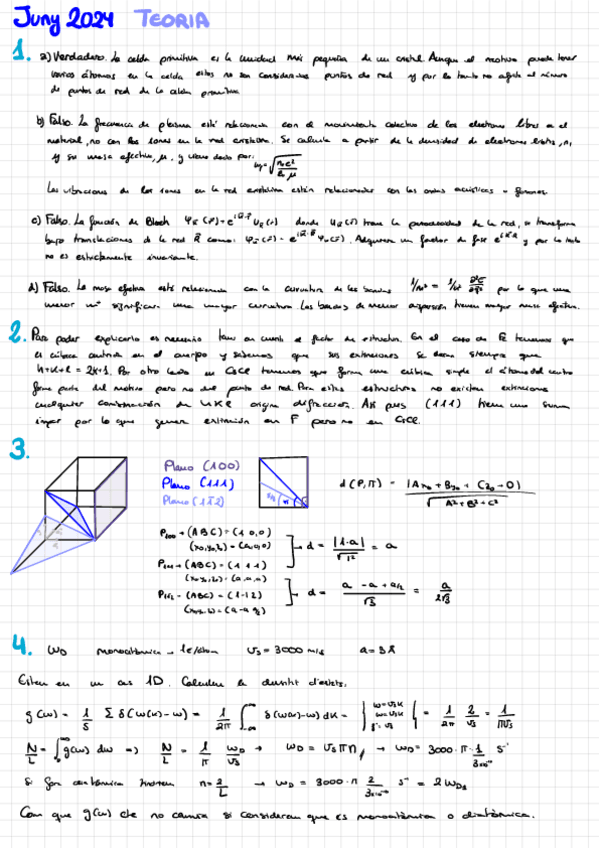 Juny 2024 TEORIA
1. a) Verdadero. La celda primitiva es la unidad más pequeña de un cristal. Aunque el motivo puede tener
varios átomos en la celda estos no son considerados puntos de red y por lo tanto no afecta al número
de puntos de red de la celda primitiva
b) Falso. La frecuencia de plasma está relacionada con el movimiento colectivo de los electrones libres en el
material, no con los iones en la red cristalina. Se calcula a partir de la densidad de electrones libres, n,
y su masa efectiva, μ, y viene dado por:
Las vibraciones de los iones en la red cristalina están relacionadas con las ondas acústicas o fonones.
c) Falso. La función de Bloch donde tiene la periodicidad de la red, se transforma
bajo translaciones de la red R como: Adquiere un factor de fase y por lo tanto
no es estrictamente invariante.
d) Falso. La masa efectiva está relacionada con la curvatura de las bandas por lo que una
menor m* significará una mayor curvatura. Las bandas de menor dispersión tienen mayor masa efectiva.
2. Para poder explicarlo es necesario tener en cuenta el factor de estructura. En el caso de Fe tenemos que
es cúbica centrada en el cuerpo y sabemos que sus extinciones se darán siempre que
h+k+l = 2k+1. Por otro lado en CsCl tenemos que forma una cúbica simple el átomo del centro
forma parte del motivo pero no del punto de red. Para estas estructuras no existen extinciones
cualquier combinación de HKL origina difracción. Así pues (111) tiene una suma
impar por lo que genera extinción en F pero no en CsCl.
3.
Plano (100)
Plano (111)
Plano (11̄2)
d(P,Π) = |Ax₀ + By₀ + Cz₀ - D| / √(A²+B²+C²)
P₁₀₀ → (ABC) = (1 0 0)
(x₀,y₀,z₀) = (a,0,0)
d = |1·a| / √1² = a
P₁₁₁ → (ABC) = (1 1 1)
(x₀,y₀,z₀) = (a,a,a)
P₁₁₂ → (ABC) = (1-12)
d = = a / 2√3
4. ω_D monoatómica → 1e/átom v_s = 3000 m/s a = 3Å
Estem en un cas 1D. Calculem la densitat d'estats.
g(ω) = 1/S Σ δ(ω(k)-ω) = 1/2π ∫ δ(ω(k)-ω) dk = = 1/2π 2/v_s = 1/πv_s
N/L = ∫ g(ω) dω => N/L = 1/π ω_D/v_s → ω_D = v_s π n, → ω_D = 3000·π·1/3·10⁻¹⁰ s⁻¹
Si fos diatómica tindríem n = 2/L → ω_D = 3000·π 2/3·10⁻¹⁰ s⁻¹ = 2ω_D
Com que g(ω) de no canvia si considerem que es monoatómica o diatómica.